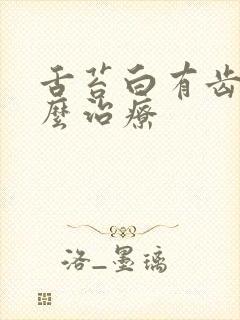 舌苔白有齿
么治疗
洛_墨璃